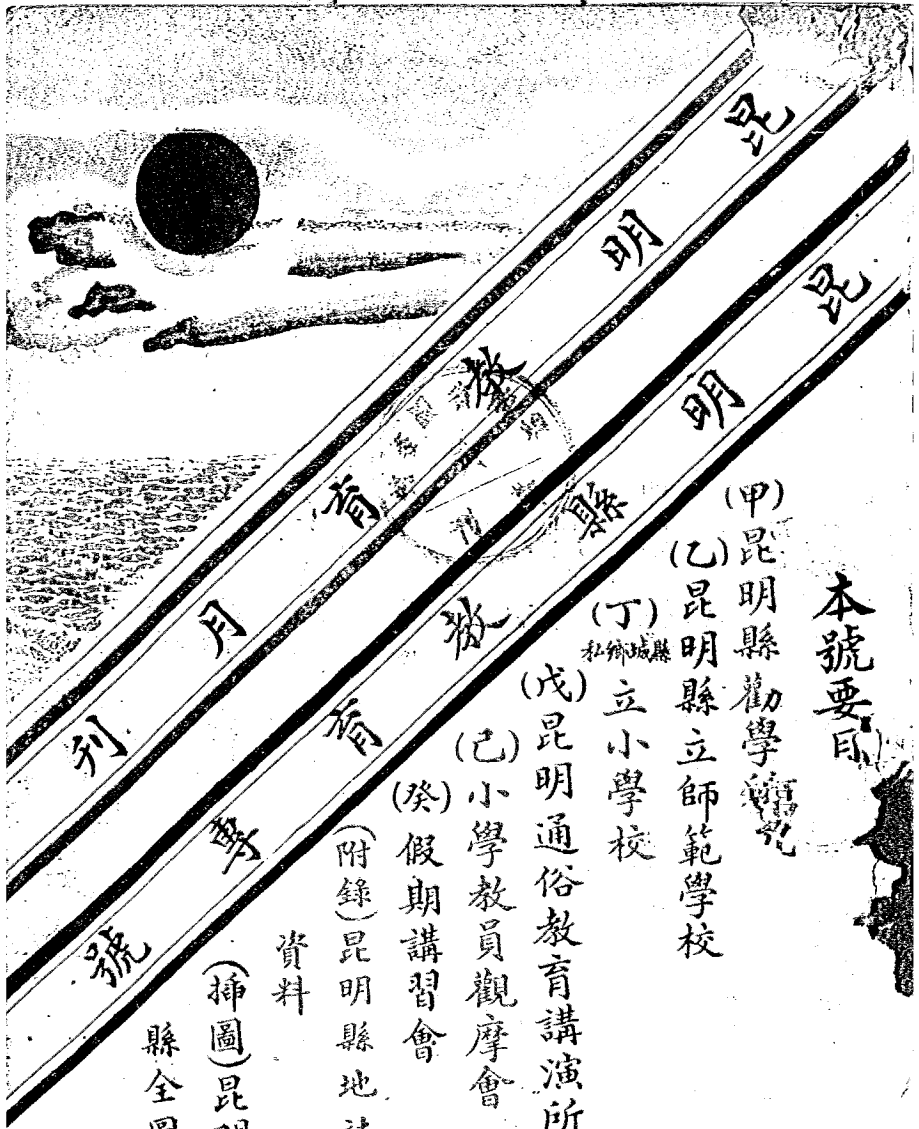 昆明教育月刊
昆明縣教育專號
本號要目
(甲)昆明縣勸學
(乙)昆明縣立師範學校
(丁)縣城鄉私立小學校
(戊)昆明通俗教育講演所
(己)小學教員觀摩會
(癸)假期講習會
(附錄)昆明縣地
資料
(插圖)昆明
縣全圖